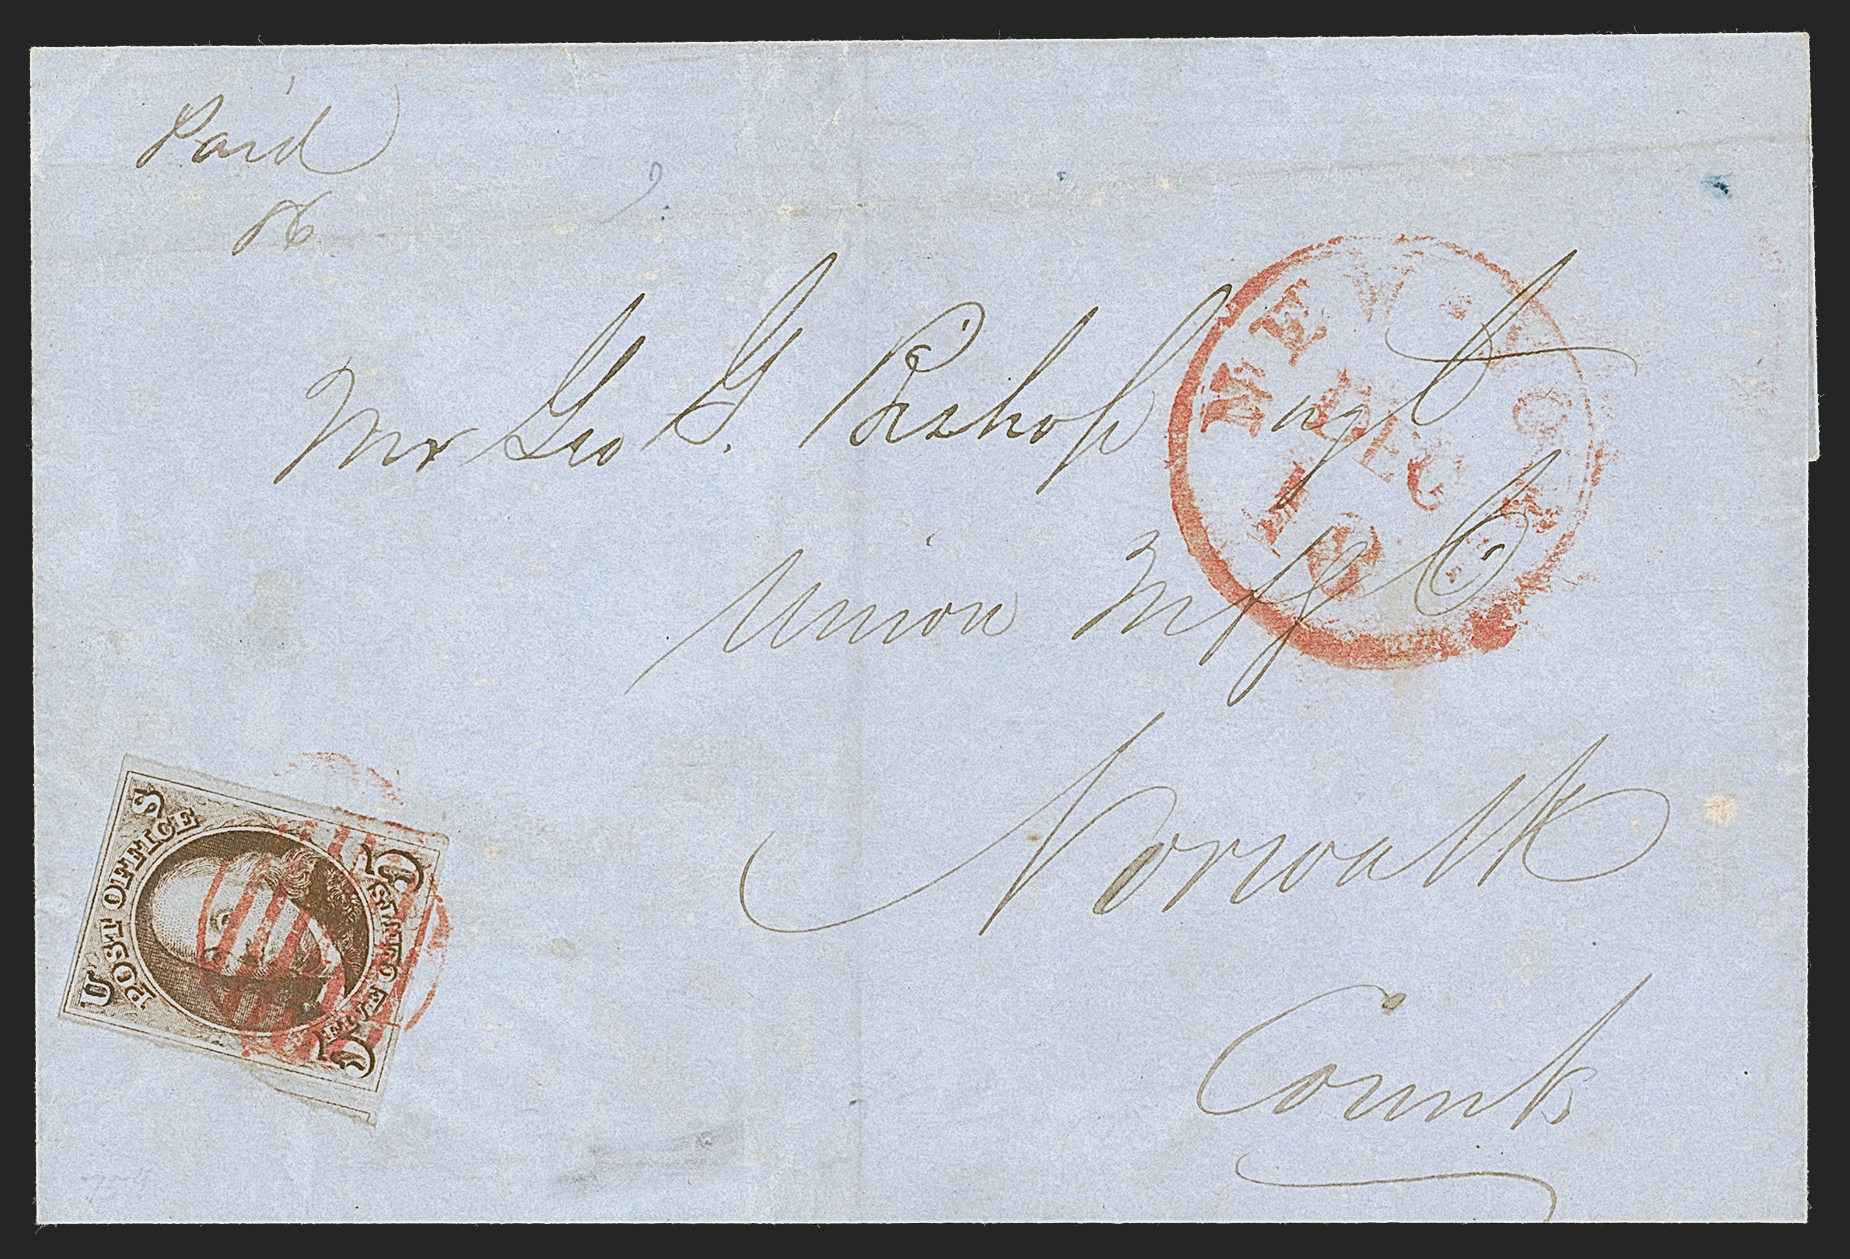 Paid
Mr Geo G. Bishop agt
Union Mfg Co
Norwalk
Connt
NEW-YORK
DEC
18
U S
POST OFFICE
FIVE CENTS
5 5